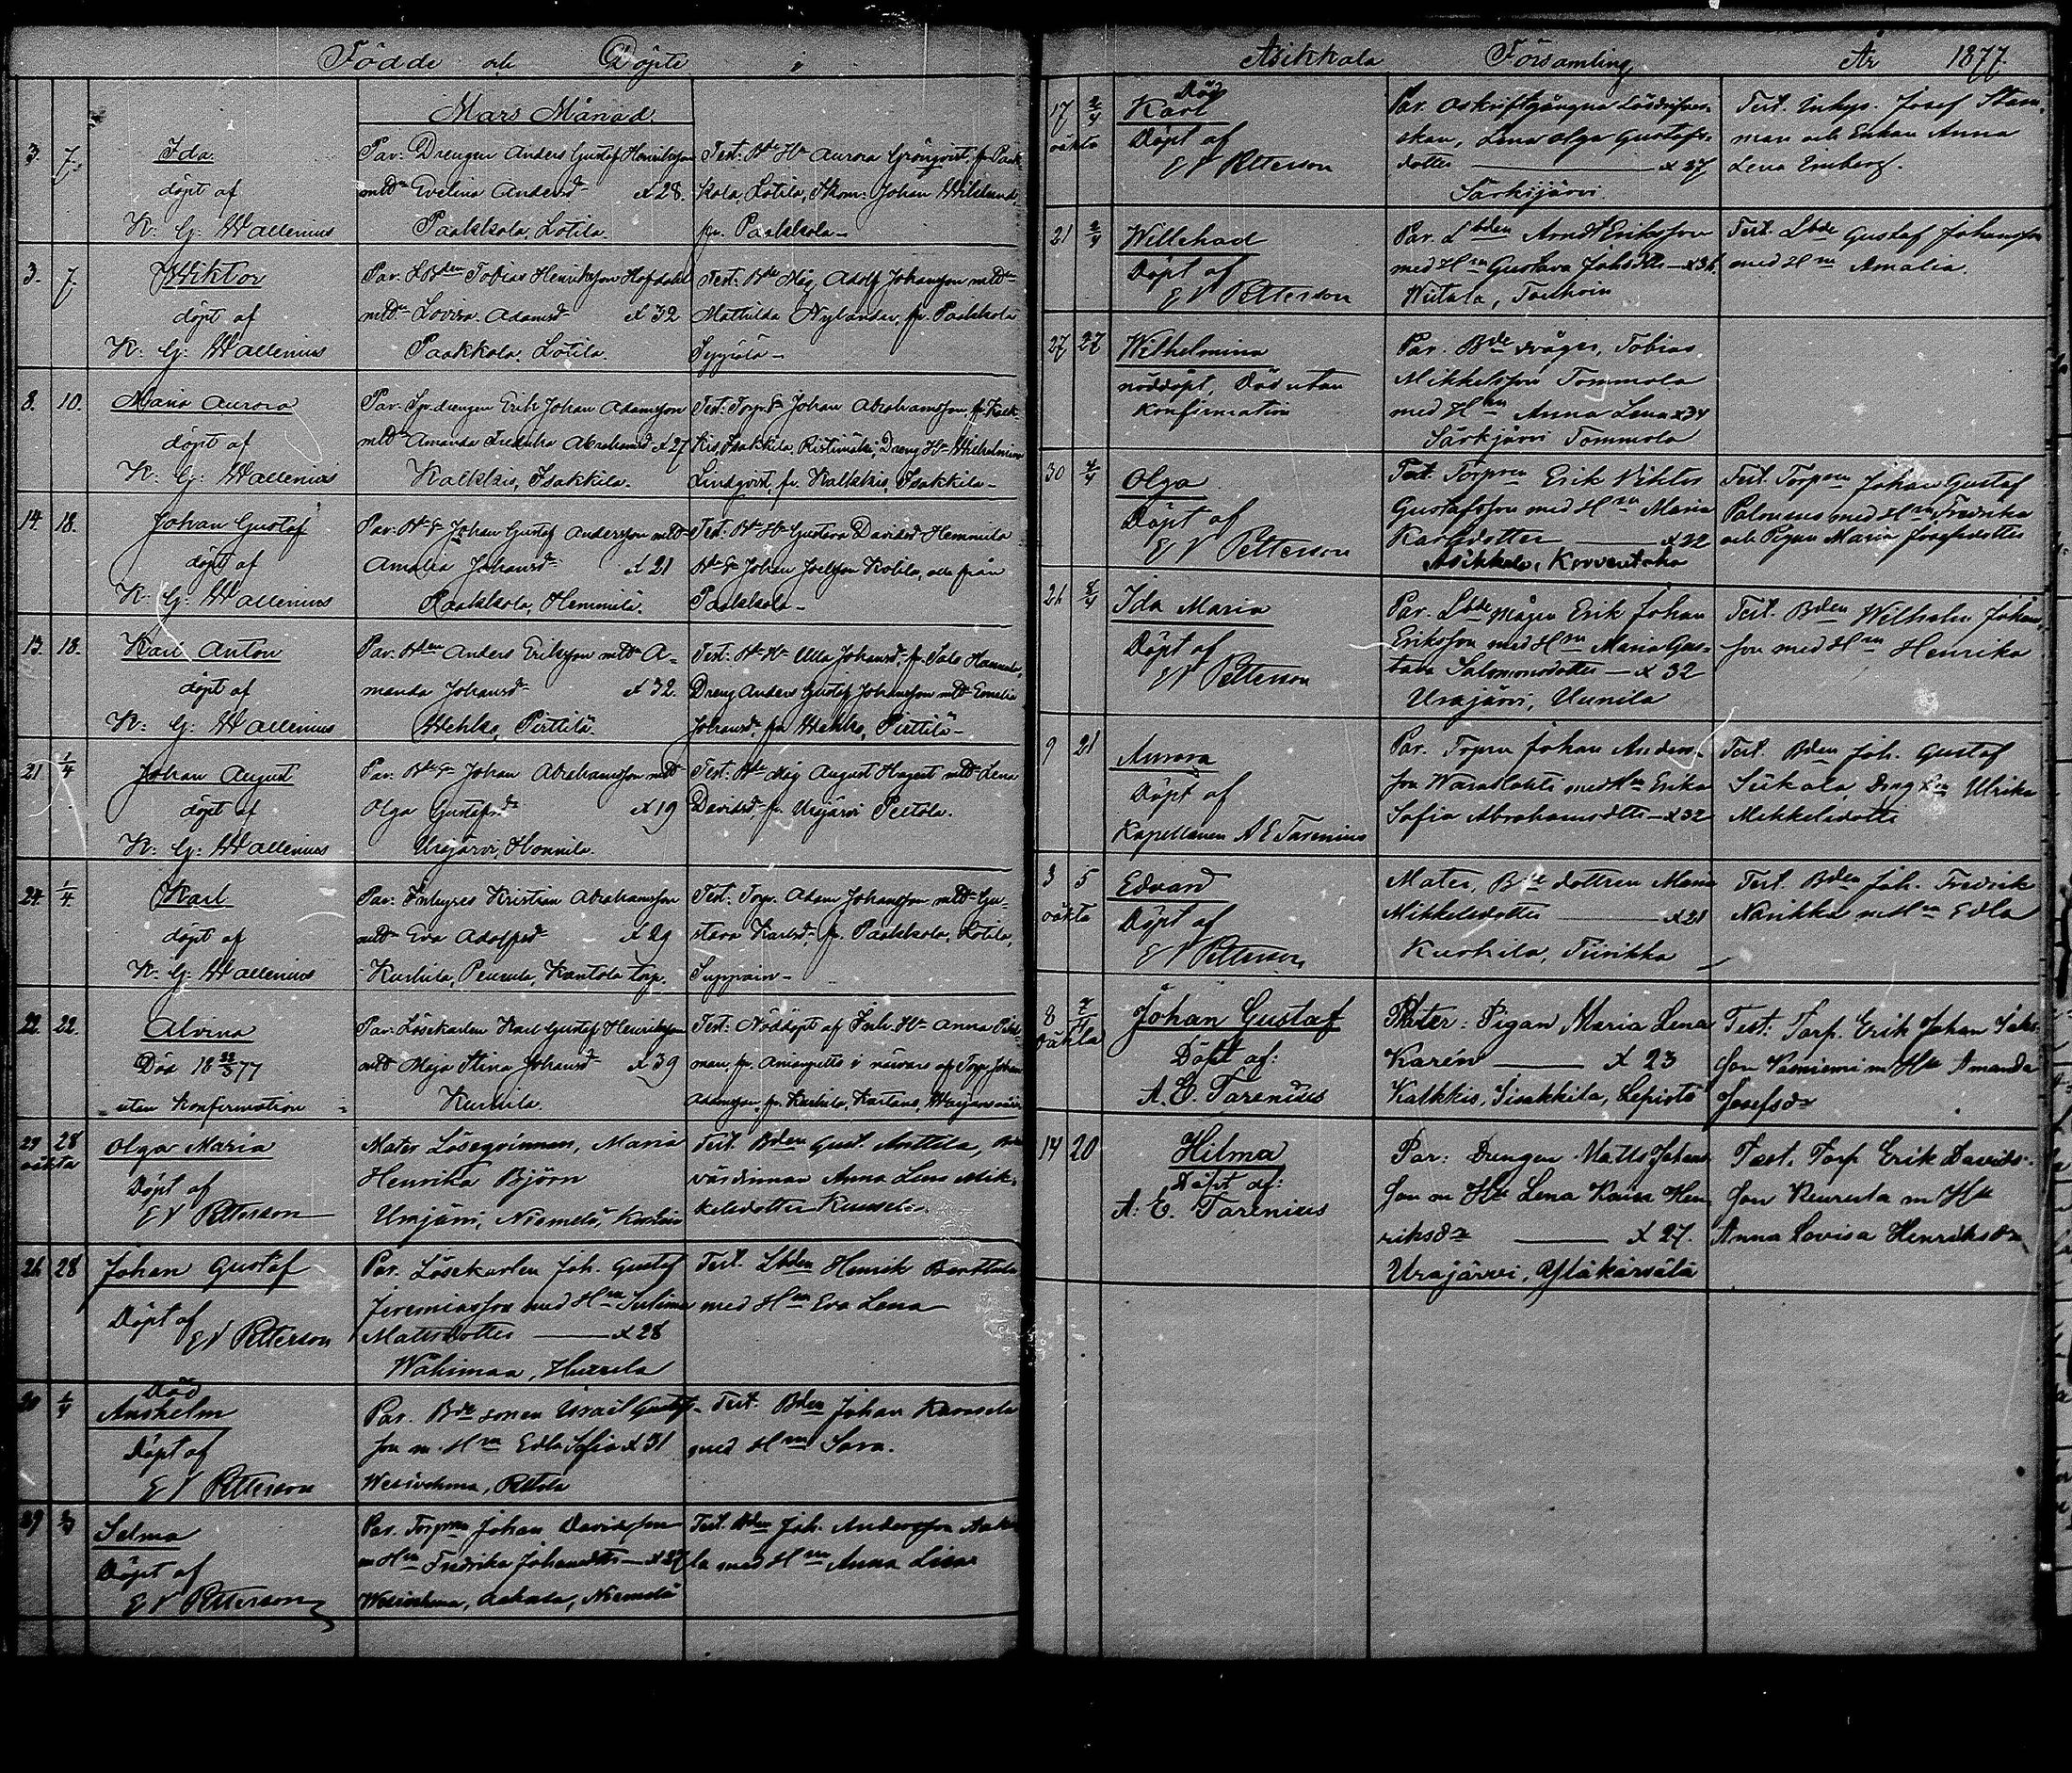 Födde och Döpte i
Mars Månad.
3. 7.
Ida
döpt af
K: G: Wallenius
Par: Drengen Anders Gustaf Henriksson
mtd Evelina Andersd x 28.
Paakkola, Lotila.
Test: Bde Hu Aurora Grönqvist, fr. Paak
kola, Lotila, Skom: Johan Wiklund
fr. Paakkola
3. 7.
Wiktor
döpt af
K: G: Wallenius
Par. LBden Tobias Henriksson Hofdahl
mtd Lovisa Adamsd x 32
Paakkola, Lotila.
Test: Bde Måg Adolf Johansson mtd
Mathilda Nylander, fr. Paakkola
Seppälä
8. 10.
Maria Aurora
döpt af
K: G: Wallenius
Par. drengen Erik Johan Adamsson
mtd Amanda Fredrika Abrahamsd x 27
Kalkkis, Isakkila.
Test: Torp. Johan Abrahamsson, fr. Kalk
kis, Isakkila, Ristimäki, Dreng Hu Wilhelmina
Lindqvist, fr. Kalkkis, Isakkila
14. 18.
Johan Gustaf
döpt af
K: G: Wallenius
Par. Johan Gustaf Andersson mtd
Amalia Johansd x 21
Paakkola, Hemmilä.
Test: Bde Hu Gustava Davidsd Hemmila
Johan Joelsson Kotila, alla från
Paakkola
13. 18.
Karl Anton
döpt af
K: G: Wallenius
Par. Anders Eriksson mtd A=
manda Johansd x 32.
Wehko, Pirttilä.
Test: Ulla Johansd, fr. Salo
Dreng Anders Gustaf Johansson mtd
Johansd, fr. Wehko, Pirttilä
21 1/4
Johan August
döpt af
K: G: Wallenius
Par. Johan Abrahamsson mtd
Olga Gustafsd x 19
Urajärvi, Honnila.
Test: Bde Måg August Hagert mtd Lena
Davidsd, fr. Urajärvi Peltola.
24 1/4
Karl
döpt af
K. G: Wallenius
Par: Inhyses Kristian Abrahamsson
mtd Eva Adolfsd x 29
Kurhila, Peurula, Kantola torp.
Test: Torp. Adam Johansson mtd Gu=
stava Karlsd, fr. Paakkola, Lotila,
22. 22.
Alvina
Död 18 23/3 77
utan Konfirmation
Par: Lösekarlen Karl Gustaf Henriksson
mtd Maja Stina Johansd x 39
Kurhila.
Test: Nöddöpt af Inh. Hu Anna
man, fr. i närvaro af Torp. Johan
Adamsson, fr. Kurhila, Kartano,
27 28
oäkta
Olga Maria
Döpt af
E V Petterson
Mater Lösqvinnan, Maria
Henrika Björn
Urajärvi, Niemelä,
Test. Bden Gust. Anttila,
värdinnan Anna Lena Mik=
kelsdotter
26 28
Johan Gustaf
Döpt af
E V Petterson
Par. Lösekarlen Joh. Gustaf
Jeremiasson med Hu
Mattsdotter x 28
Wähimaa, Hurrila
Test. Lbden Henrik Barttila
med Hu Eva Lena
30 1/4
Död
Anshelm
Döpt af
E V Petterson
Par. Bde sonen Israil Gustaf-
son m. Hu Edla Sofia x 31
Wesivehma, Peltola
Test. Bden Johan
med Hu Sara.
29
Selma
Döpt af
E V Petterson
Par. Torpren Johan Davidsson
m Hu Fredrika Johansdttr x 27
Wesivehma, Niemelä
Test. Bden Joh. Andersson
la med Hu Anna Lisa
Asikkala Församling År 1877
17 2/4
oäkta
Död
Karl
Döpt af
E V Petterson
Par. Lösdrifver=
skan, Lena Olga Gustafs=
dotter x 27
Särkijärvi.
Test. Inhys. Josef Stam
man och Enkan Anna
Lena Enberg.
21 2/4
Willehad
Döpt af
E V Petterson
Par. Lbden Arndt Eriksson
med Hu Gustava Johsdttr x 31
Wiitala,
Test. Lbde Gustaf Johansson
med Hu Amalia.
27 27
Wilhelmina
nöddöpt, död utan
Konfirmation
Par. Bde svåger, Tobias
Mikkelsson Tommola
med Hu Anna Lena x 34
Särkjärvi Tommola
30 4/4
Olga
Döpt af
E V Petterson
Test. Torpren Erik Viktor
Gustafsson med Hu Maria
Karlsdotter x 22
Asikkala,
Test. Torpren Johan Gustaf
med Hu Fredrika
och Pigan Maria Josefsdotter
21 2/4
Ida Maria
Döpt af
E V Petterson
Par. Lbde mågen Erik Johan
Eriksson med Hu Maria Gus=
tava Salomonsdotter x 32
Urajärvi, Uunila
Test. Bden Wilhelm Johans
son med Hu Henrika
9 21
Aurora
Döpt af
Kapellanen A E Tarenius
Par. Torpren Johan Anders=
son med Hu Erika
Sofia Abrahamsdttr x 32
Test. Bden Joh. Gustaf
Siikala, Dreng Ulrika
Mikkelsdotter
3 5
oäkta
Edvard
Döpt af
E V Petterson
Mater, Bde dottren Maria
Mikkelsdotter x 21
Kurhila, Tiirikka
Test. Bden Joh. Fredrik
m Hu Edla
8 7/4
oäkta
Johan Gustaf
Döpt af:
A. E. Tarenius
Mater: Pigan Maria Lena
Karén x 23
Kalkkis, Iisakkila, Lepistö
Test: Torp. Erik Johan Isaks
son m Hu Amanda
Josefsdr
14 20
Hilma
Döpt af:
A. E. Tarenius
Par: Drengen Matts Johans
son m Hu Lena Kaisa Hen
riksdr x 27.
Urajärvi, Yläkärsälä
Test. Torp Erik Davids-
son m Hu
Anna Lovisa Henriksdr